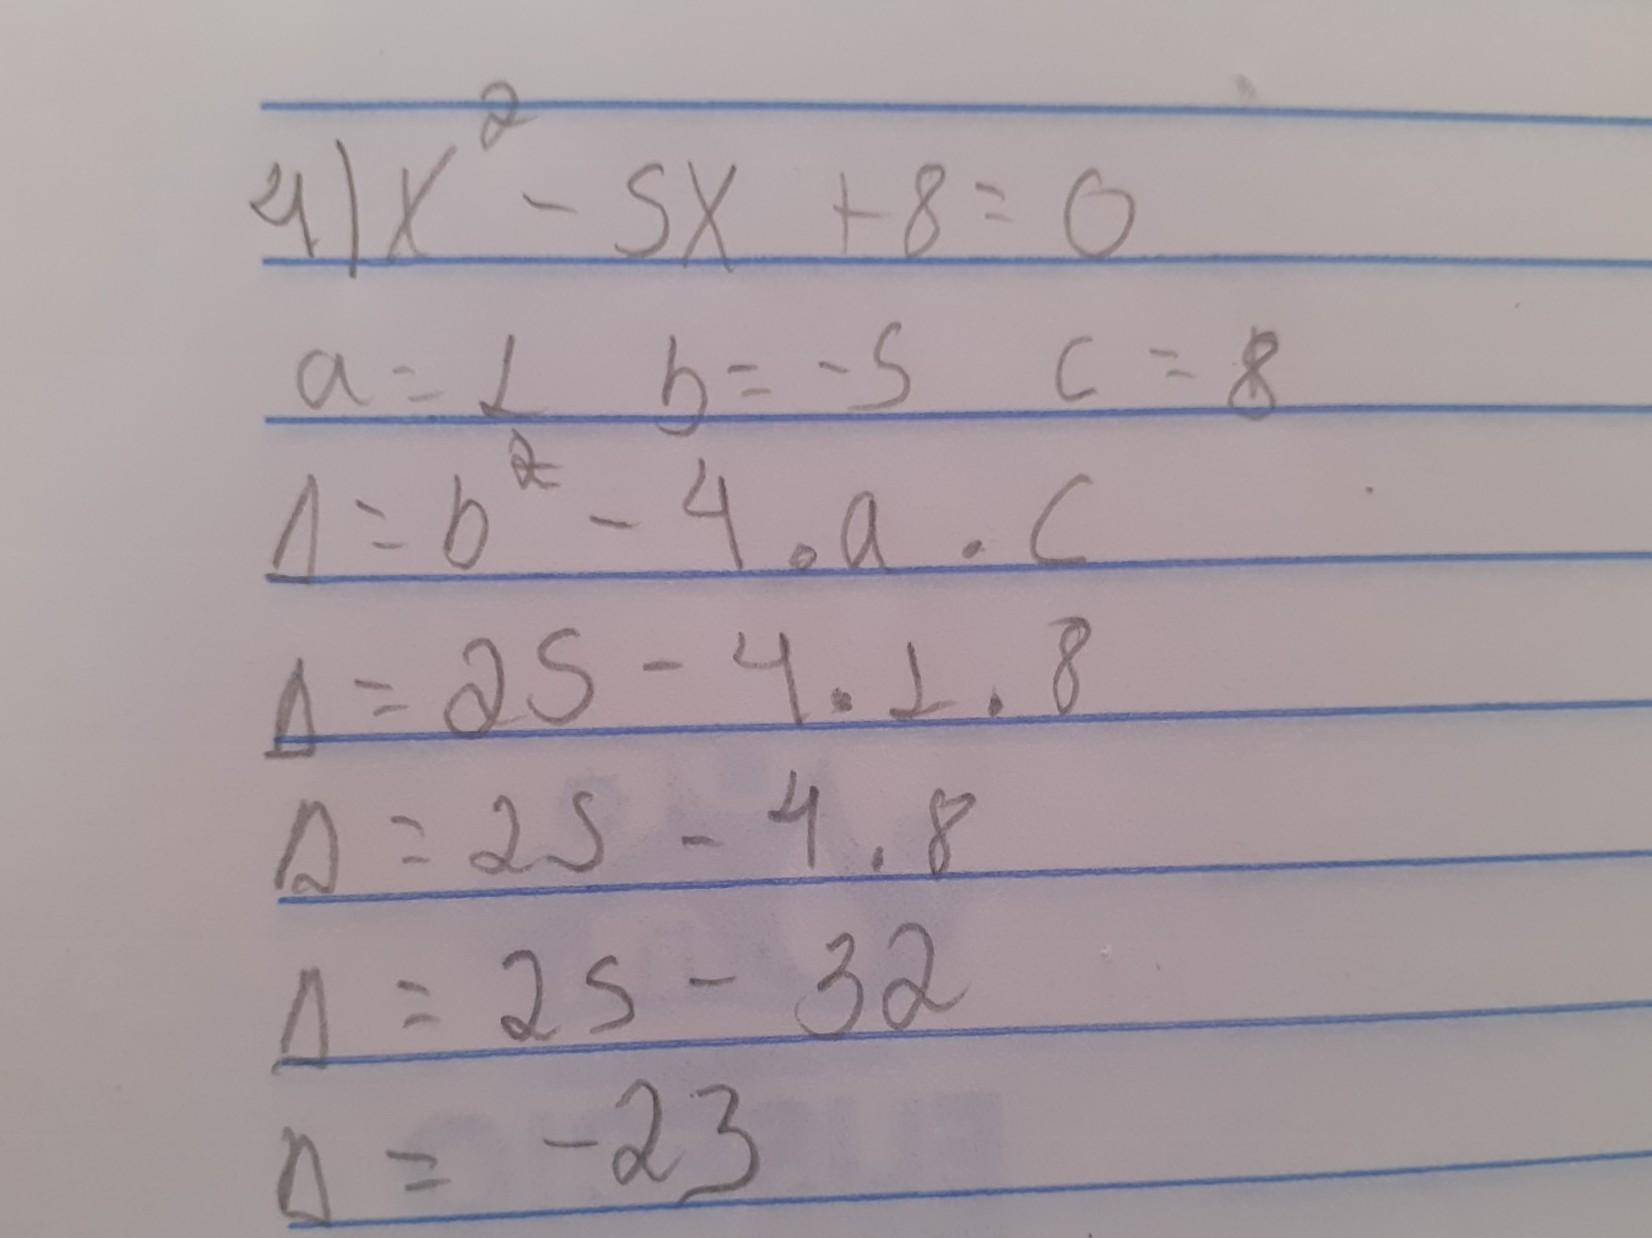 4) x² - 5x + 8 = 0
a = 1 b = -5 c = 8
Δ = b² - 4 . a . c
Δ = 25 - 4 . 1 . 8
Δ = 25 - 4 . 8
Δ = 25 - 32
Δ = -23